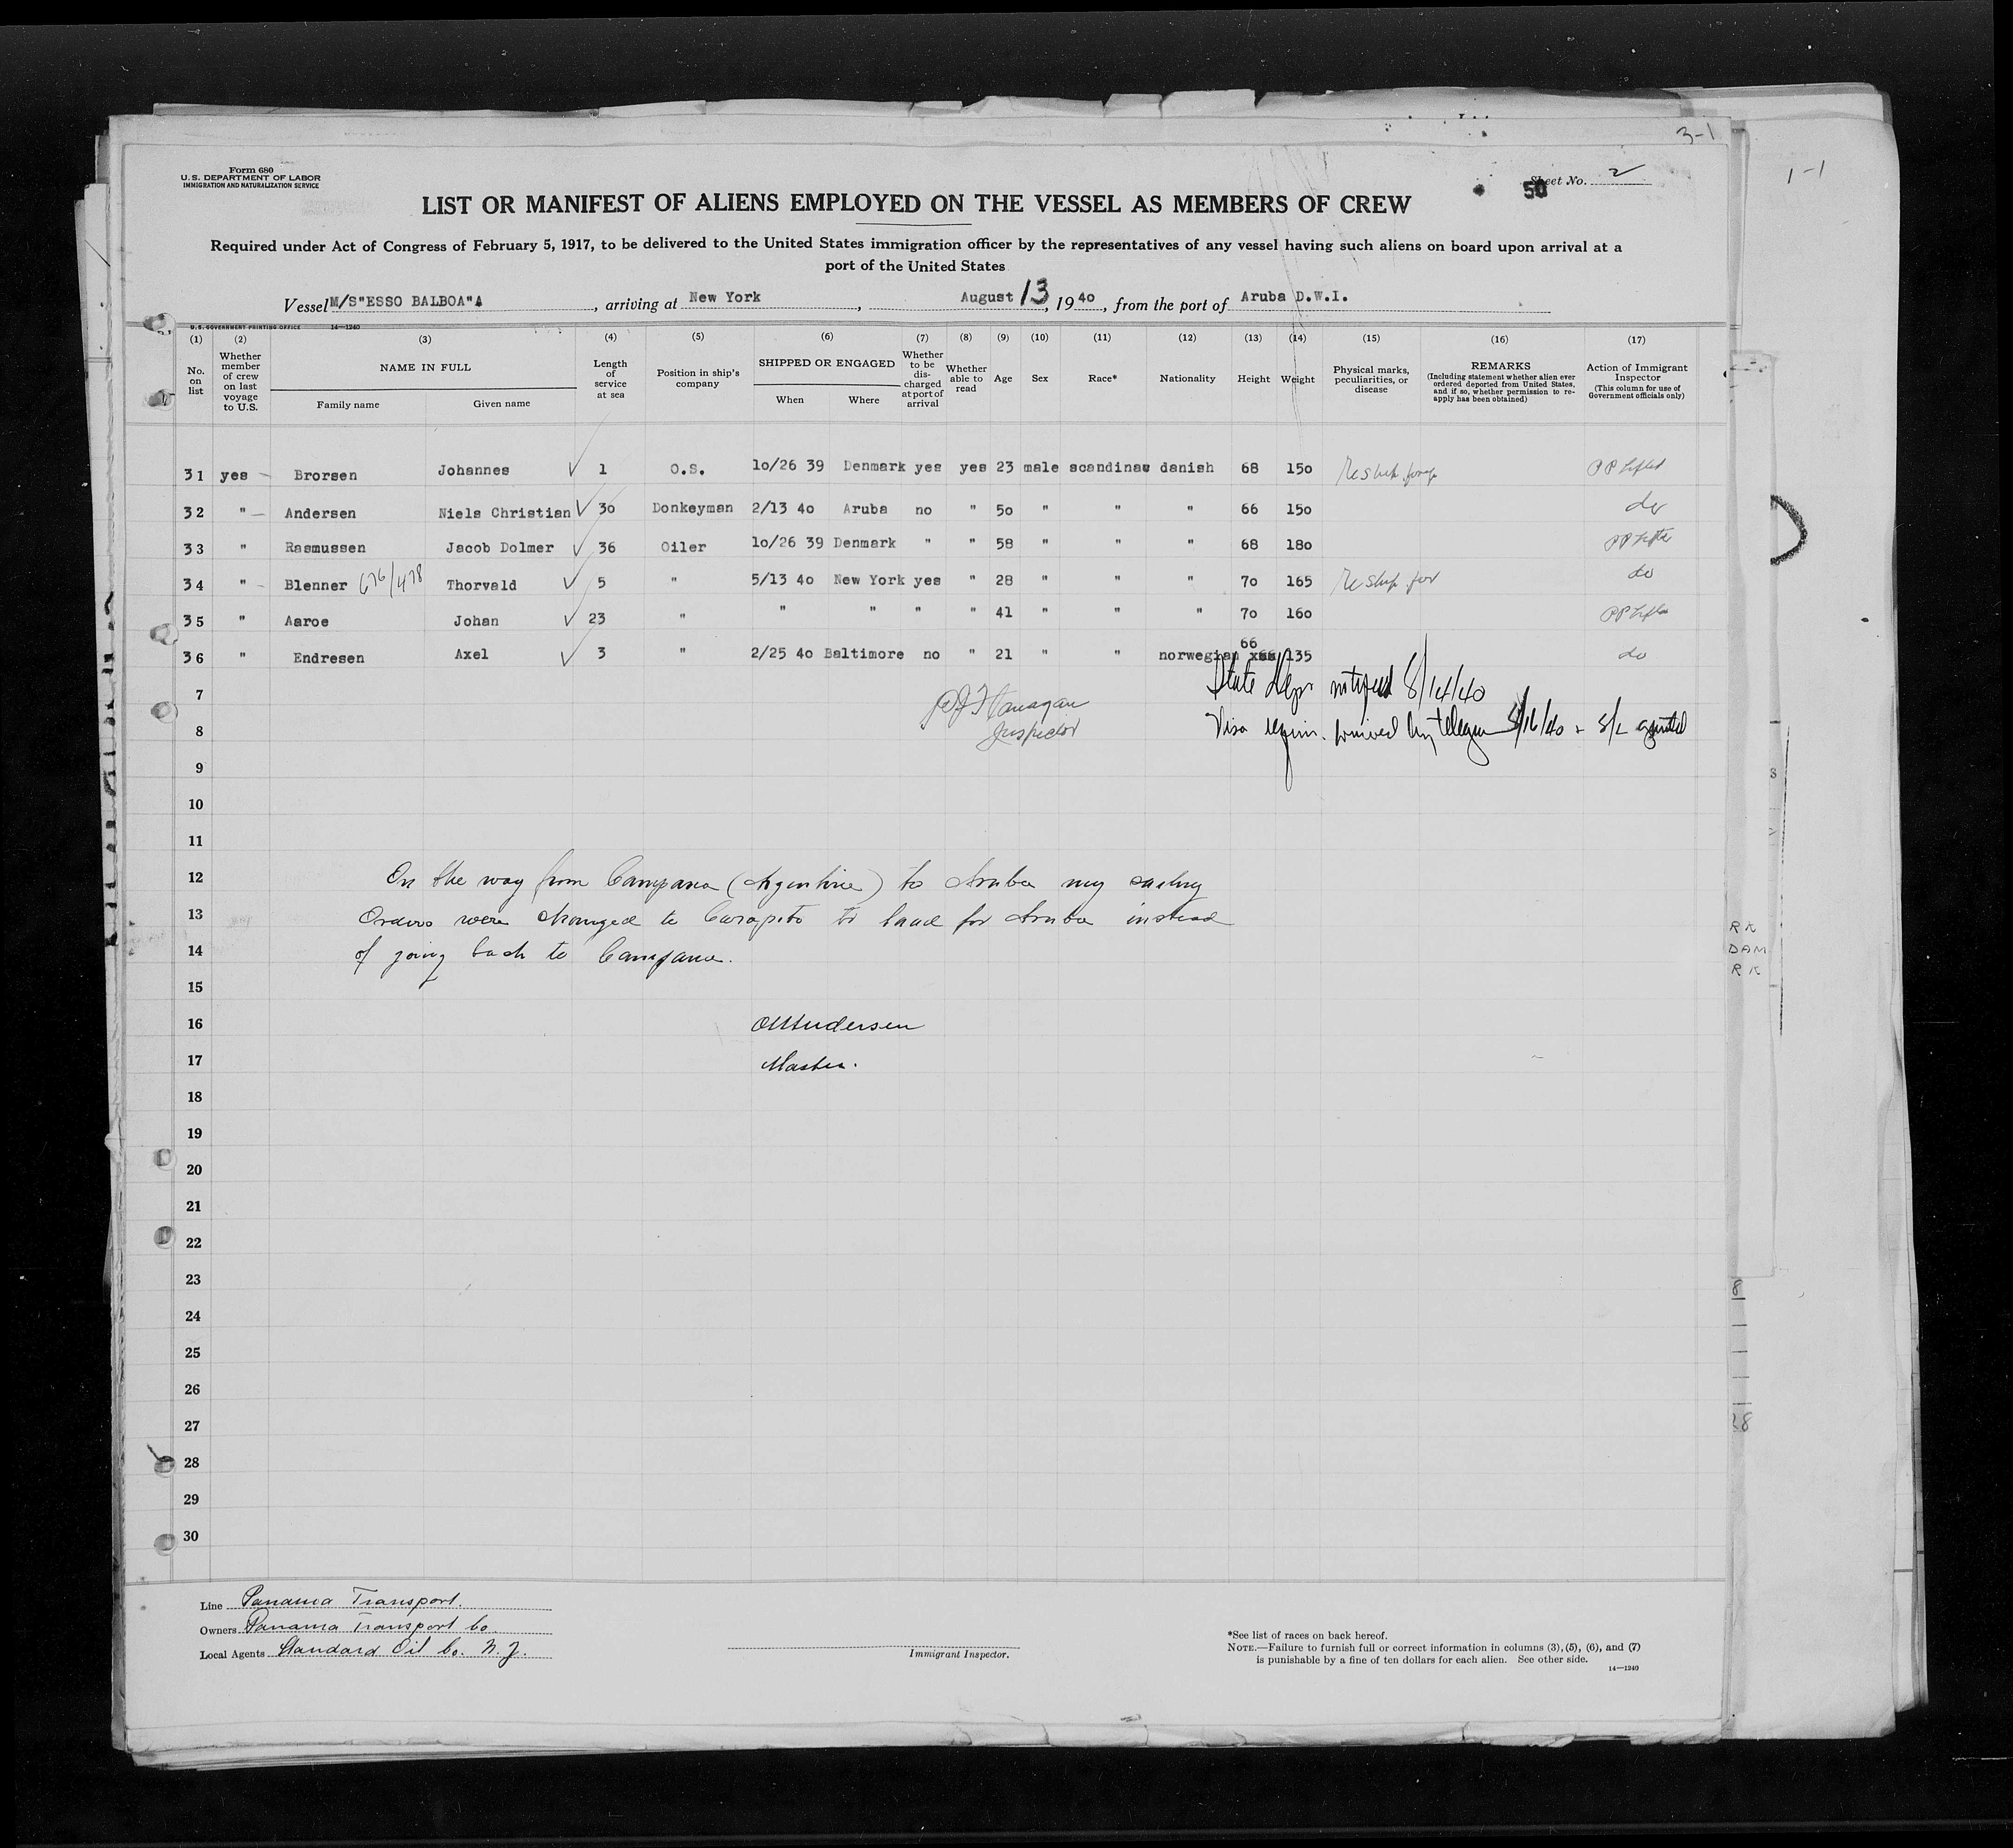 3-1
1-1
Form 680
U.S. DEPARTMENT OF LABOR
IMMIGRATION AND NATURALIZATION SERVICE
Sheet No. 2
50
LIST OR MANIFEST OF ALIENS EMPLOYED ON THE VESSEL AS MEMBERS OF CREW
Required under Act of Congress of February 5, 1917, to be delivered to the United States immigration officer by the representatives of any vessel having such aliens on board upon arrival at a
port of the United States
Vessel M/S"ESSO BALBOA", arriving at New York, August 13, 1940, from the port of Aruba D.W.I.
U.S. GOVERNMENT PRINTING OFFICE 14—1240
(1) (2) (3) (4) (5) (6) (7) (8) (9) (10) (11) (12) (13) (14) (15) (16) (17)
No. on list
Whether member of crew on last voyage to U.S.
NAME IN FULL
Family name Given name
Length of service at sea
Position in ship's company
SHIPPED OR ENGAGED
When Where
Whether to be discharged at port of arrival
Whether able to read
Age
Sex
Race*
Nationality
Height
Weight
Physical marks, peculiarities, or disease
REMARKS
(Including statement whether alien ever ordered deported from United States, and if so, whether permission to reapply has been obtained)
Action of Immigrant Inspector
(This column for use of Government officials only)
31 yes – Brorsen Johannes ✓ 1 O.S. 10/26 39 Denmark yes yes 23 male scandinav danish 68 150 PP Lifted
32 " – Andersen Niels Christian ✓ 30 Donkeyman 2/13 40 Aruba no " 50 " " " 66 150 do
33 " Rasmussen Jacob Dolmer ✓ 36 Oiler 10/26 39 Denmark " " 58 " " " 68 180 PP Lifted
34 " – Blenner 676/478 Thorvald ✓ 5 " 5/13 40 New York yes " 28 " " " 70 165 Reship for do
35 " Aaroe Johan ✓ 23 " " " " " 41 " " " 70 160 PP Lifted
36 " Endresen Axel ✓ 3 " 2/25 40 Baltimore no " 21 " " norwegian 66 135 do
7 Flanagan State Dept notified 8/14/40
8 Inspector Visa waived by telegram 8/16/40 - S/L granted
9
10
11
12 On the way from Campana (Argentine) to Aruba my sailing
13 Orders were changed to Caripito to load for Aruba instead
14 of going back to Campana.
15
16 Andersen
17 Master.
18
19
20
21
22
23
24
25
26
27
28
29
30
RK
DAM
RK
8
38
Line Panama Transport.
Owners Panama Transport Co.
Local Agents Standard Oil Co. N.J.
Immigrant Inspector.
*See list of races on back hereof.
NOTE.—Failure to furnish full or correct information in columns (3), (5), (6), and (7)
is punishable by a fine of ten dollars for each alien. See other side.
14—1240